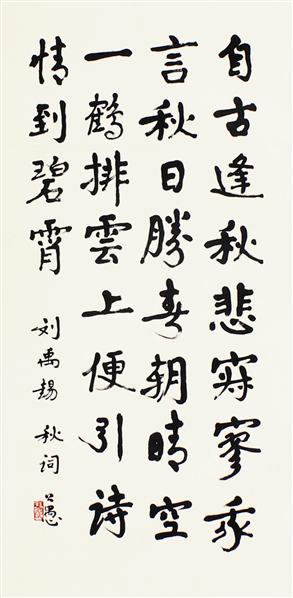 自古逢秋悲寂寥我
言秋日勝春朝晴空
一鶴排雲上便引詩
情到碧霄
刘禹锡 秋词 公愚